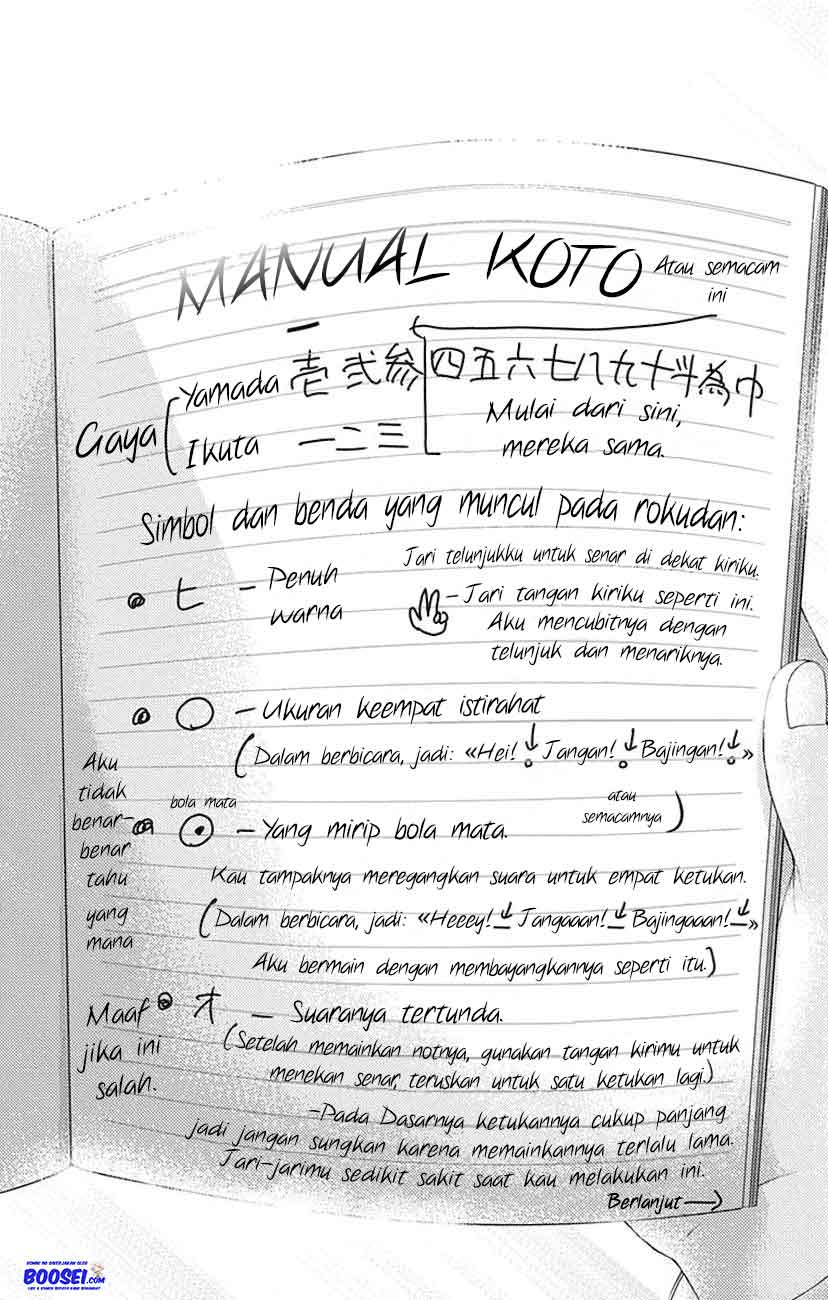 MANUAL KOTO
Atau semacam
ini
Gaya
Yamada 壱 弐 参 四 五 六 七 八 九 十 斗 為 巾
Ikuta 一 二 三
Mulai dari sini,
mereka sama.
Simbol dan benda yang muncul pada rokudan:
ヒ - Penuh
warna
Jari telunjukku untuk senar di dekat kiriku.
- Jari tangan kiriku seperti ini.
Aku mencubitnya dengan
telunjuk dan menariknya.
○ - Ukuran keempat istirahat
(Dalam berbicara, jadi: «Hei! ↓ Jangan! ↓ Bajingan! ↓»
atau
semacamnya)
Aku
tidak
benar-
benar
tahu
yang
mana
bola mata
- Yang mirip bola mata.
Kau tampaknya meregangkan suara untuk empat ketukan.
(Dalam berbicara, jadi: «Heeey! ↓ Jangaaan! ↓ Bajingaaan! ↓»
Aku bermain dengan membayangkannya seperti itu.)
Maaf
jika ini
salah.
オ - Suaranya tertunda.
(Setelah memainkan notnya, gunakan tangan kirimu untuk
menekan senar, teruskan untuk satu ketukan lagi.)
-Pada Dasarnya ketukannya cukup panjang
jadi jangan sungkan karena memainkannya terlalu lama.
Jari-jarimu sedikit sakit saat kau melakukan ini.
Berlanjut →
BOOSEI.COM